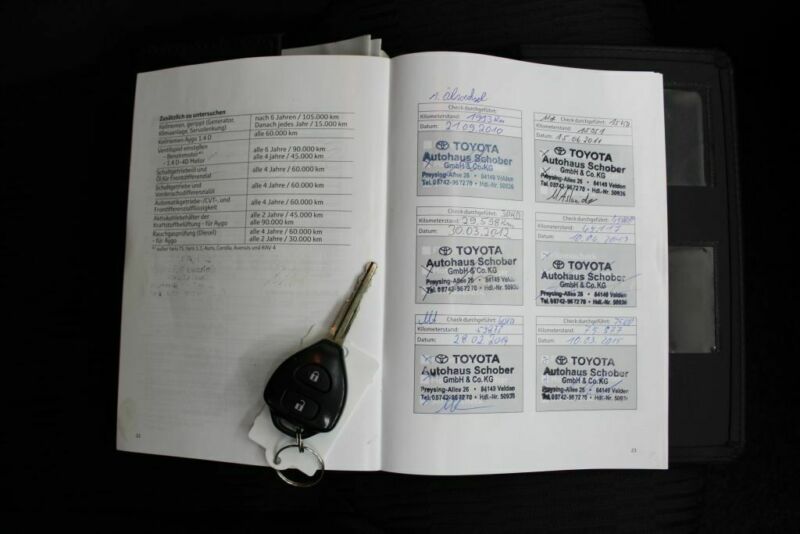 Zusätzlich zu untersuchen
Keilriemen, gerippt (Generator, Klimaanlage, Servolenkung) nach 6 Jahren / 105.000 km
Danach jedes Jahr / 15.000 km
Keilriemen Aygo 1.4 D alle 60.000 km
Ventilspiel einstellen
- Benzinmotor*¹ alle 6 Jahre / 90.000 km
- 1.4 D-4D Motor alle 4 Jahre / 45.000 km
Schaltgetriebeöl und
Öl für Frontdifferenzial alle 4 Jahre / 60.000 km
Schaltgetriebe und
alle 4 Jahre / 60.000 km
Automatikgetriebe-/CVT-, und
Frontdifferenzialflüssigkeit alle 4 Jahre / 60.000 km
Aktivkohlebehälter der
Kraftstoffbelüftung - für Aygo alle 2 Jahre / 45.000 km
alle 90.000 km
Rauchgasprüfung (Diesel) alle 4 Jahre / 60.000 km
- für Aygo alle 2 Jahre / 30.000 km
22
Check durchgeführt:
Kilometerstand: 1913 km
Datum: 21.09.2010
TOYOTA
Autohaus Schober
GmbH & Co. KG
Preysing-Allee 26 • 84149 Velden
Tel. 08742-967270 • Hdl.-Nr. 50936
Check durchgeführt:
Kilometerstand:
Datum: 15.06.2011
TOYOTA
Autohaus Schober
GmbH & Co. KG
Preysing-Allee 26 • 84149 Velden
Tel. 08742-967270 • Hdl.-Nr. 50936
Check durchgeführt:
Kilometerstand: 29.598 km
Datum: 30.03.2012
TOYOTA
Autohaus Schober
GmbH & Co. KG
Preysing-Allee 26 • 84149 Velden
Tel. 08742-967270 • Hdl.-Nr. 50936
Check durchgeführt:
Kilometerstand: 44.117
Datum: 10.04.2013
TOYOTA
Autohaus Schober
GmbH & Co. KG
Preysing-Allee 26 • 84149 Velden
Tel. 08742-967270 • Hdl.-Nr. 50936
Check durchgeführt:
Kilometerstand:
Datum: 28.02.2014
TOYOTA
Autohaus Schober
GmbH & Co. KG
Preysing-Allee 26 • 84149 Velden
Tel. 08742-967270 • Hdl.-Nr. 50936
Check durchgeführt:
Kilometerstand: 75.877
Datum: 10.03.2015
TOYOTA
Autohaus Schober
GmbH & Co. KG
Preysing-Allee 26 • 84149 Velden
Tel. 08742-967270 • Hdl.-Nr. 50936
23